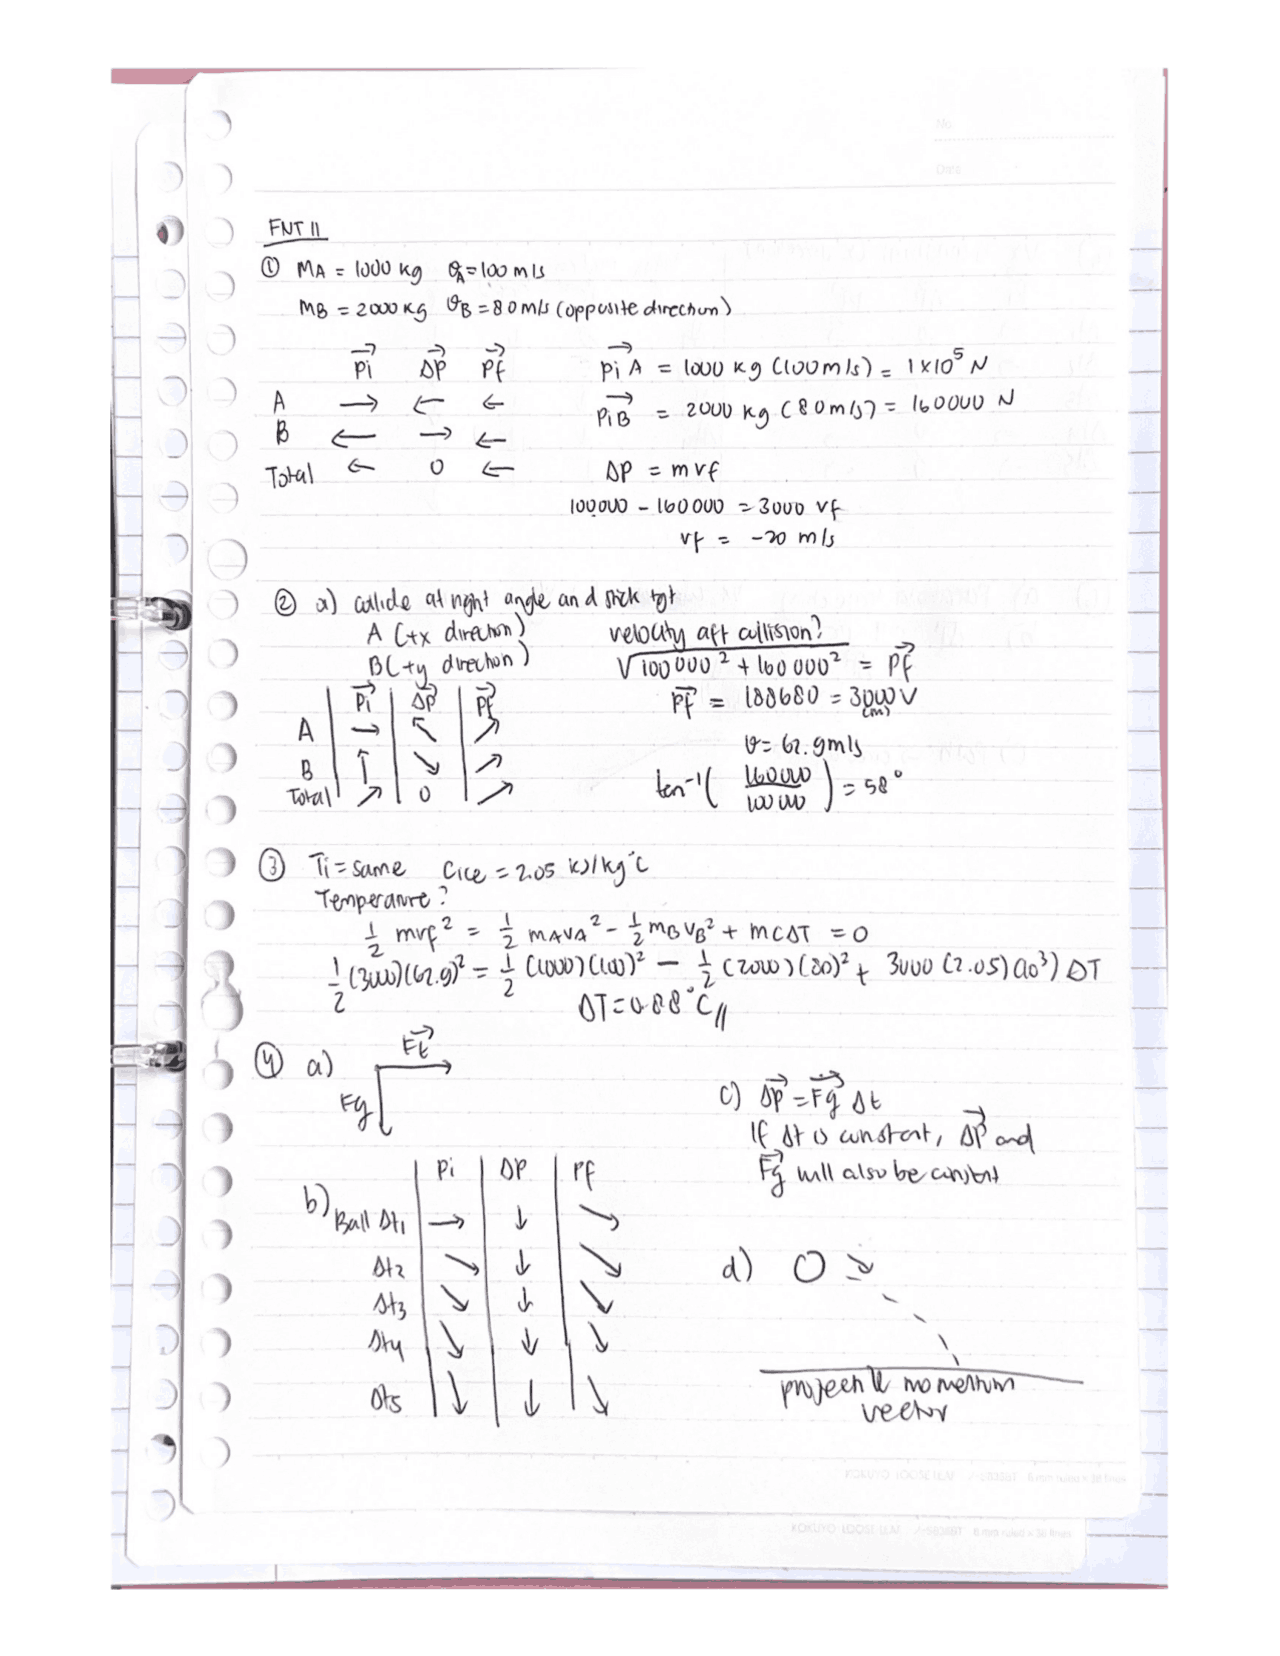 FNT 11
① MA = 1000 kg vA = 100 m/s
MB = 2000 kg vB = 80 m/s (opposite direction)
Pi ΔP Pf
A → ← ←
B ← → ←
Total ← 0 ←
Pi A = 1000 kg (100 m/s) = 1x10⁵ N
Pi B = 2000 kg (80 m/s) = 160000 N
ΔP = m vf
100000 - 160000 = 3000 vf
vf = -20 m/s
② a) collide at right angle and stick tgt
A (+x direction)
B (+y direction)
Pi ΔP Pf
A → ↖ ↗
B ↑ ↘ ↗
Total ↗ 0 ↗
velocity aft collision?
√100000² + 160000² = Pf
Pf = 188680 = 3000 V
(m)
v = 62.9 m/s
tan⁻¹(160000/100000) = 58°
③ Ti = same Cice = 2.05 kJ/kg°C
Temperature?
1/2 mvf² = 1/2 mAVA² - 1/2 mBVB² + mCΔT = 0
1/2 (3000)(62.9)² = 1/2 (1000)(100)² - 1/2 (2000)(80)² + 3000 (2.05)(10³) ΔT
ΔT = 0.88°C //
④ a) Ft
Fg
b) Pi ΔP Pf
Ball Δt1 → ↓ ↘
Δt2 ↘ ↓ ↘
Δt3 ↘ ↓ ↘
Δt4 ↘ ↓ ↘
Δt5 ↘ ↓ ↘
c) ΔP = Fg Δt
If Δt is constant, ΔP and
Fg will also be constant
d)
projectile momentum
vector
No.
Date
KOKUYO LOOSE-LEAF
KOKUYO LOOSE-LEAF 6 mm ruled × 36 lines